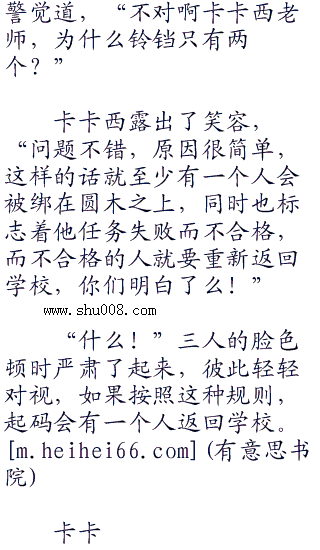 警觉道，“不对啊卡卡西老
师，为什么铃铛只有两
个？”
卡卡西露出了笑容，
“问题不错，原因很简单，
这样的话就至少有一个人会
被绑在圆木之上，同时也标
志着他任务失败而不合格，
而不合格的人就要重新返回
学校，你们明白了么！”
www.shu008.com
“什么！”三人的脸色
顿时严肃了起来，彼此轻轻
对视，如果按照这种规则，
起码会有一个人返回学校。
[m.heihei66.com](有意思书
院)
卡卡